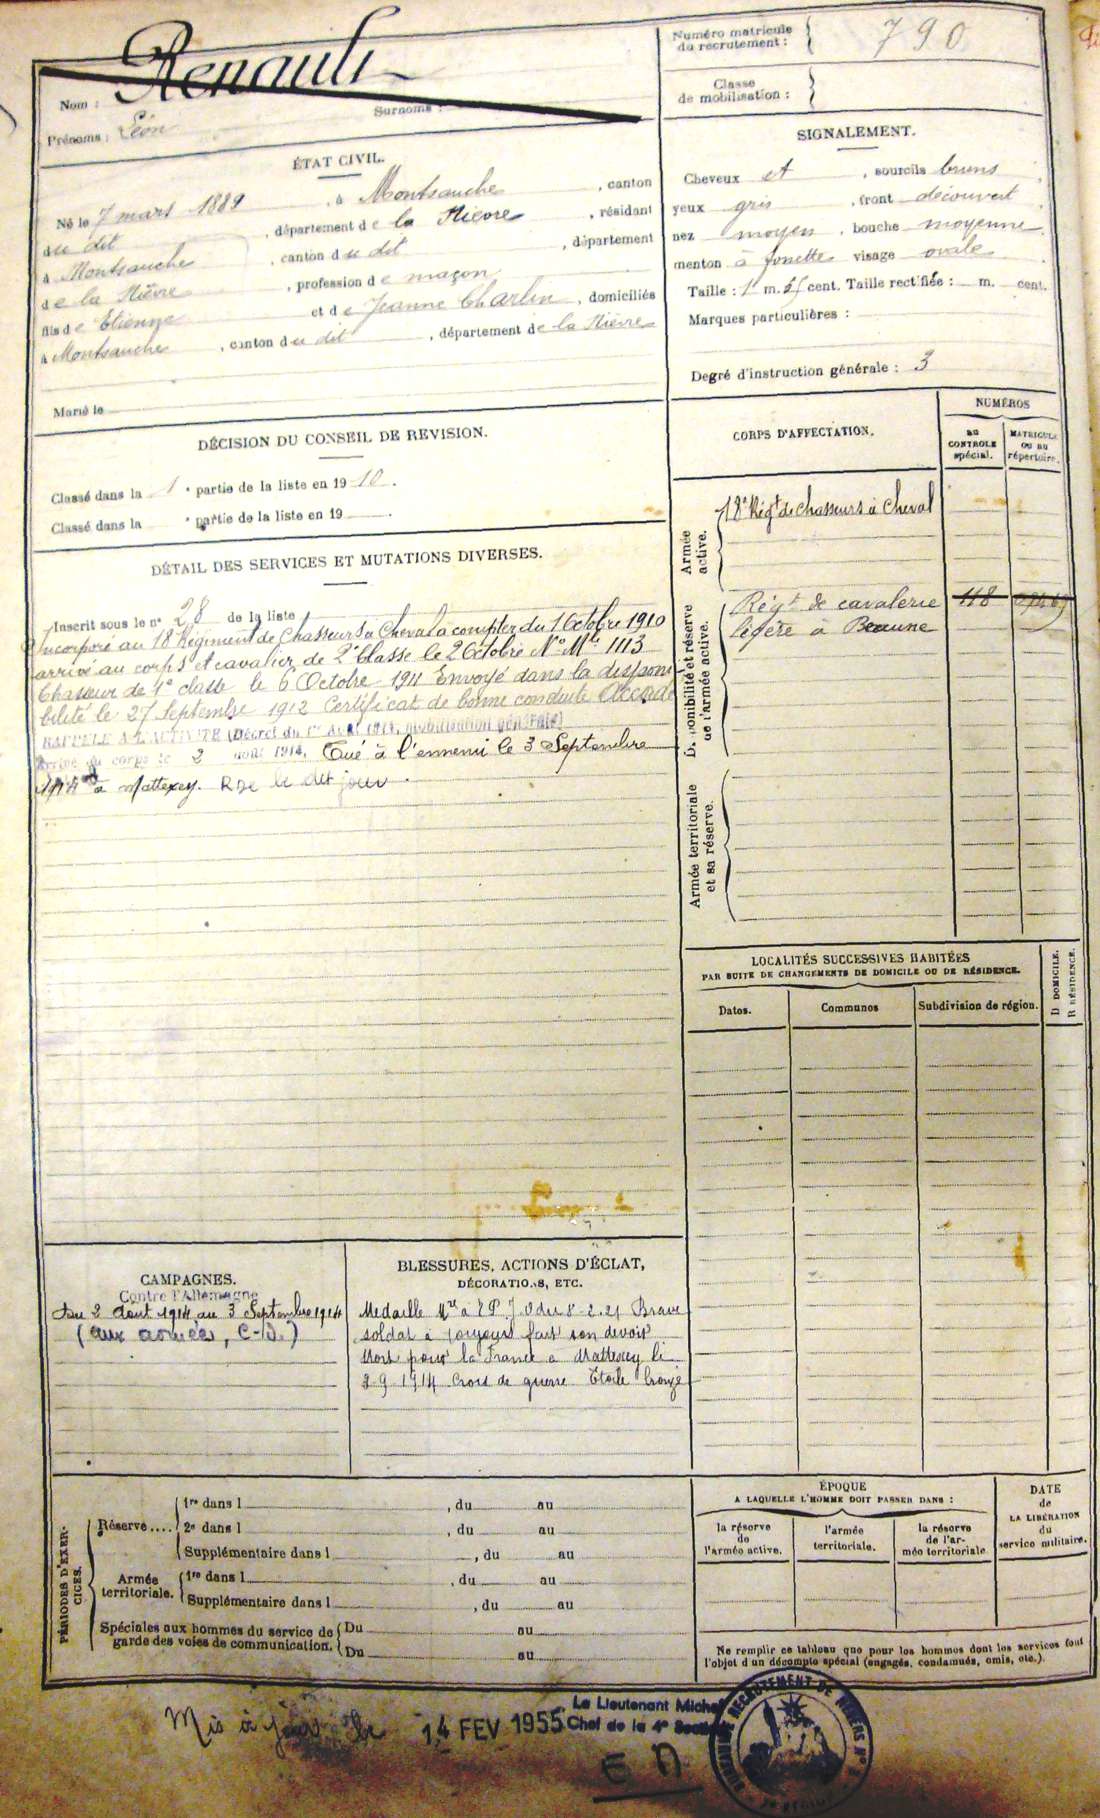 Renault
Nom :
Surnoms :
Prénoms : Léon
Numéro matricule
du recrutement : 790
Classe
de mobilisation :
ÉTAT CIVIL.
Né le 7 mars 1889, à Montsauche, canton
du dit, département de la Nièvre, résidant
à Montsauche, canton du dit, département
de la Nièvre, profession de maçon
fils de Etienne et de Jeanne Charlin, domiciliés
à Montsauche, canton du dit, département de la Nièvre
Marié le
SIGNALEMENT.
Cheveux et, sourcils bruns
yeux gris, front découvert
nez moyen, bouche moyenne
menton à fossette visage ovale
Taille : 1 m. cent. Taille rectifiée : m. cent.
Marques particulières :
Degré d'instruction générale : 3
DÉCISION DU CONSEIL DE REVISION.
Classé dans la 1 e partie de la liste en 1910.
Classé dans la e partie de la liste en 19
DÉTAIL DES SERVICES ET MUTATIONS DIVERSES.
Inscrit sous le n° 28 de la liste
Incorporé au 18 Régiment de Chasseurs à Cheval à compter du 1 Octobre 1910
arrivé au corps et cavalier de 2e Classe le 2 Octobre N° Mle 1113
Chasseur de 1e classe le 6 Octobre 1911 Envoyé dans la disponi
bilité le 27 Septembre 1912 Certificat de bonne conduite Accordé
RAPPELÉ A L'ACTIVITÉ (Décret du 1er Août 1914, mobilisation générale)
Arrivé au corps le 3 août 1914. Tué à l'ennemi le 3 Septembre
1914 à Mattexey. R de le dit jour.
CORPS D'AFFECTATION.
NUMÉROS
AU
CONTROLE
spécial.
MATRICULE
OU AU
répertoire.
Armée
active.
18e Régt de Chasseurs à Cheval
Disponibilité et réserve
de l'armée active.
Régt de cavalerie 118
légère à Beaune
Armée territoriale
et sa réserve.
LOCALITÉS SUCCESSIVES HABITÉES
PAR SUITE DE CHANGEMENTS DE DOMICILE OU DE RÉSIDENCE.
Dates.
Communes
Subdivision de région.
D DOMICILE.
R RÉSIDENCE.
CAMPAGNES.
Contre l'Allemagne
Du 2 Août 1914 au 3 Septembre 1914
(aux armées, C-D.)
BLESSURES, ACTIONS D'ÉCLAT,
DÉCORATIONS, ETC.
Médaille Mre à T P J. O du 8-2-21 Brave
soldat a toujours fait son devoir
Mort pour la France à Mattexey le
3-9-1914 Croix de guerre Etoile bronze
PÉRIODES D'EXER-
CICES.
Réserve....
1re dans l, du au
2e dans l, du au
Supplémentaire dans l, du au
Armée
territoriale.
1re dans l, du au
Supplémentaire dans l, du au
Spéciales aux hommes du service de
garde des voies de communication.
Du au
Du au
ÉPOQUE
A LAQUELLE L'HOMME DOIT PASSER DANS :
la réserve
de
l'armée active.
l'armée
territoriale.
la réserve
de l'ar-
mée territoriale
DATE
de
LA LIBÉRATION
du
service militaire.
Ne remplir ce tableau que pour les hommes dont les services font
l'objet d'un décompte spécial (engagés, condamnés, omis, etc.).
Mis à jour le 14 FEV 1955
Le Lieutenant Michel
Chef de la 4e Section
BUREAU DE RECRUTEMENT DE NEVERS